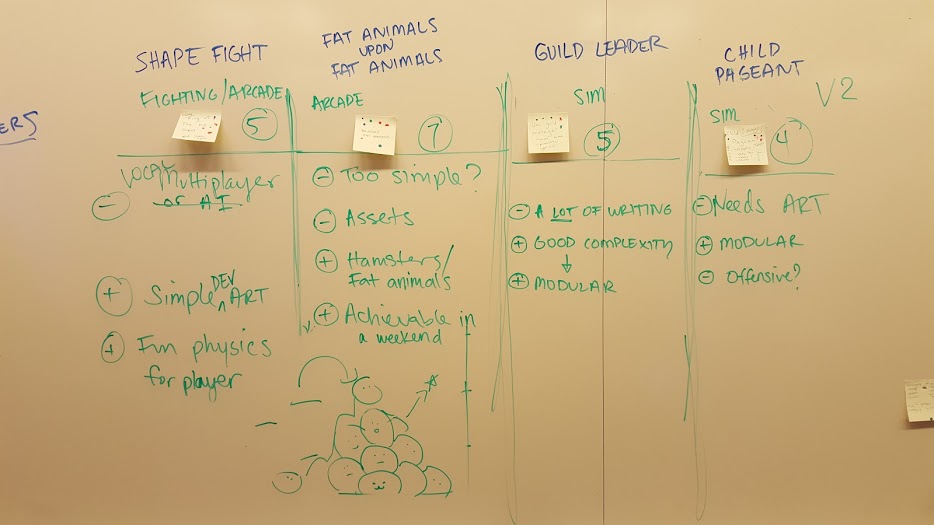 ERS
SHAPE FIGHT
FIGHTING/ARCADE
5
LOCAL Multiplayer
or AI
⊖
⊕ Simple DEV ART
⊕ Fun physics
for player
FAT ANIMALS
UPON
FAT ANIMALS
ARCADE
7
⊖ Too simple?
⊖ Assets
⊕ Hamsters/
Fat animals
⊕ Achievable in
a weekend
GUILD LEADER
SIM
5
⊖ A LOT OF WRITING
⊕ GOOD COMPLEXITY
⊕ MODULAR
CHILD
PAGEANT
V2
SIM
4
⊖ Needs ART
⊕ MODULAR
⊖ Offensive?